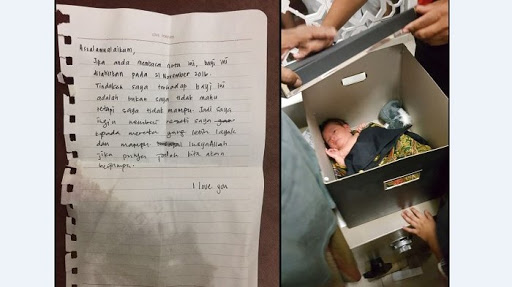 Assalammalaikum,
Jika anda membaca nota ini, bayi ini
dilahirkan pada 21 November 2016
Tindakan saya terhadap bayi ini
adalah bukan saya tidak mahu
tetapi saya tidak mampu. Jadi saya
ingin memberi saya
kepada mereka yang lebih layak
dan mampu InsyaAllah
jika panjang kita akan
berjumpa.
I love you